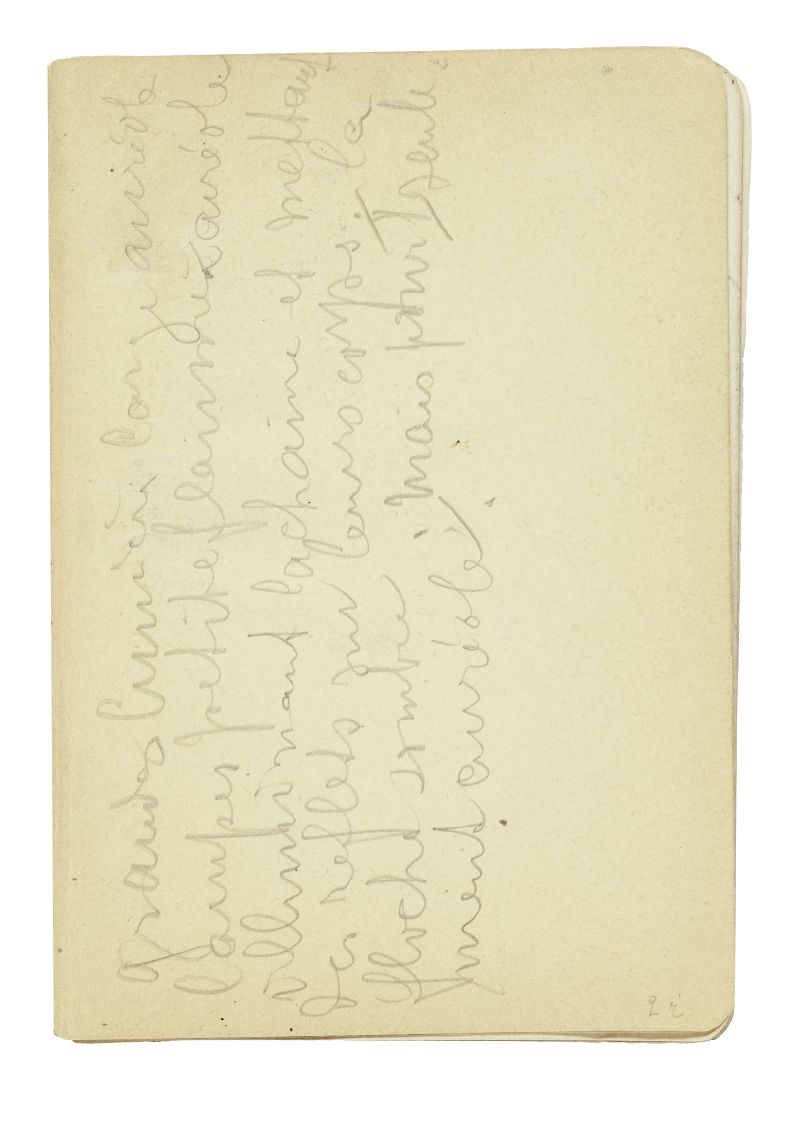 grandes lumières lampe auréole
lampes petite flamme très auréolée
illuminant la chaine et mettant
des reflets sur leurs corps. la
floche sombre mais pourt
ment auréolé
2 r